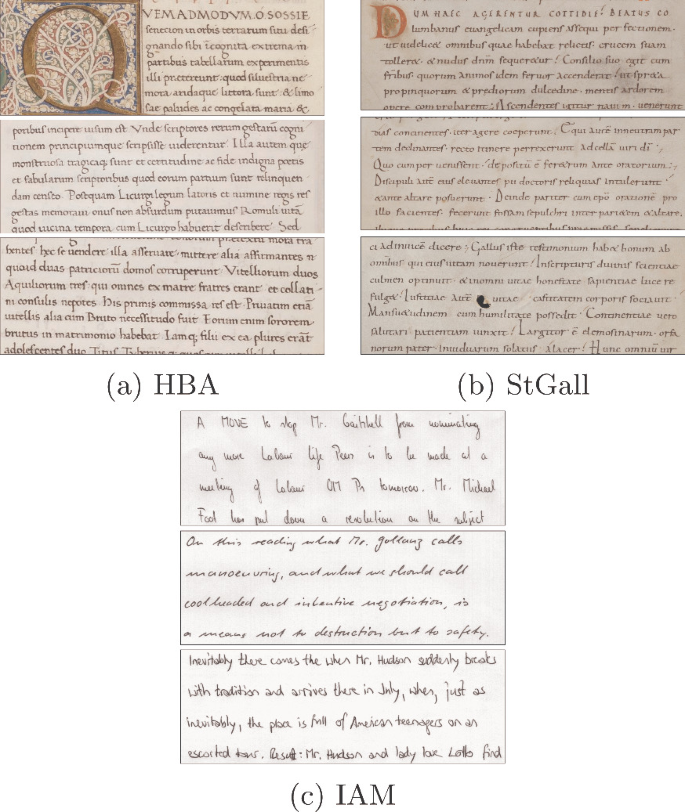 VEMADMODVM.O.SOSSIE
senecion in orbis terrarum situ desi
gnando sibi icognita extrema in
partibus tabellarum experimentis
illi preterirent: quod siluestria ne
mora. aridaque littora sint: & limo
sae paludes ac congelata maria &
poribus incipit uisum est. Vnde scriptores rerum gestarũ cogni
tionem principiumque scripsisse uiderentur. Illa autem que
monstruosa tragicaq; sunt et certitudine ac fide indigna poetis
et fabularum scriptoribus quod eorum partium sunt relinquen
dam censeo. Postquam Licurgi legum latoris et numine regis res
gestas memoraui. onus non absurdum putauimus Romuli uitã
quod uicina tempora cum Licurgo habuerit describere. Sed
bentes hec se uendere. illa asseruare. mittere alia affirmantes n
quoid duas patriciorũ domos corruperunt Vitelliorum duos
Aquiliorum tres. qui omnes ex matre fratres erant et collati
ni consulis nepotes. His primis commissa res est. Priuatim etiã
uitellis alia cum Bruto necessitudo fuit. Eorum enim sororem
brutus in matrimonio habebat. Iamq; filii ex ea plures erãt
adolescentes duo Titus
(a) HBA
DUM HAEC AGERENTUR COTTIDIE BEATUS CO
lumbanus euangelicam cupiens assequi perfectionem.
ut uidelicet omnibus quae habebat relictis crucem suam
tolleret. & nudus dnm sequeretur. Consilio suo egit cum
fribus quorum animos idem feruor accenderat. ut spreta
propinquorum & prediorum dulcedine. mentis ardorem
opere comprobarent. Ascendentes igitur nauim. uenerunt
bus concinentes iter agere coeperunt. Equi autẽ nequaquam par
tem declinantes. recto itinere perrexerunt ad cellã uiri dī.
Quo cum peruenissent. depositũ ẽ feretrum ante oratorium.
Discipuli autẽ eius eleuantes pii doctoris reliquias intulerunt.
& ante altare posuerunt. Deinde pariter cum epõ oratione pro
illo facientes. fecerunt fossam sepulchri inter parietem & altare.
ei adminicẽ ducere. Gallus iste testimonium habet bonum ab
omnibus qui eius uitam nouerunt. Inscripturis diuinis scientiae
culmen optinuit. & in omni uitae honestate sapientiae luce re
fulget. Iustitiae autẽ uitae castitatem corporis sociauit.
Mansuetudinem cum humilitate possedit. Continentiae uero
salutari patientiam iunxit. Largitor ẽ elemosinarum. orfa
norum pater. Inuiduarum solatiis alacer. Hunc omniũ uir
(b) StGall
A MOVE to stop Mr. Gaitskell from nominating
any more Labour life Peers is to be made at a
meeting of Labour OM Ps tomorrow. Mr. Michael
Foot has put down a resolution on the subject
On this reading what Mr. Gollanz calls
manoeuvring, and what we should call
coolheaded and inventive negotiation, is
a means not to destruction but to safety.
Inevitably there comes the when Mr. Hudson suddenly breaks
with tradition and arrives there in July, when, just as
inevitably, the place is full of American teenagers on an
escorted tour. Result: Mr. Hudson and lady love Lotto find
(c) IAM